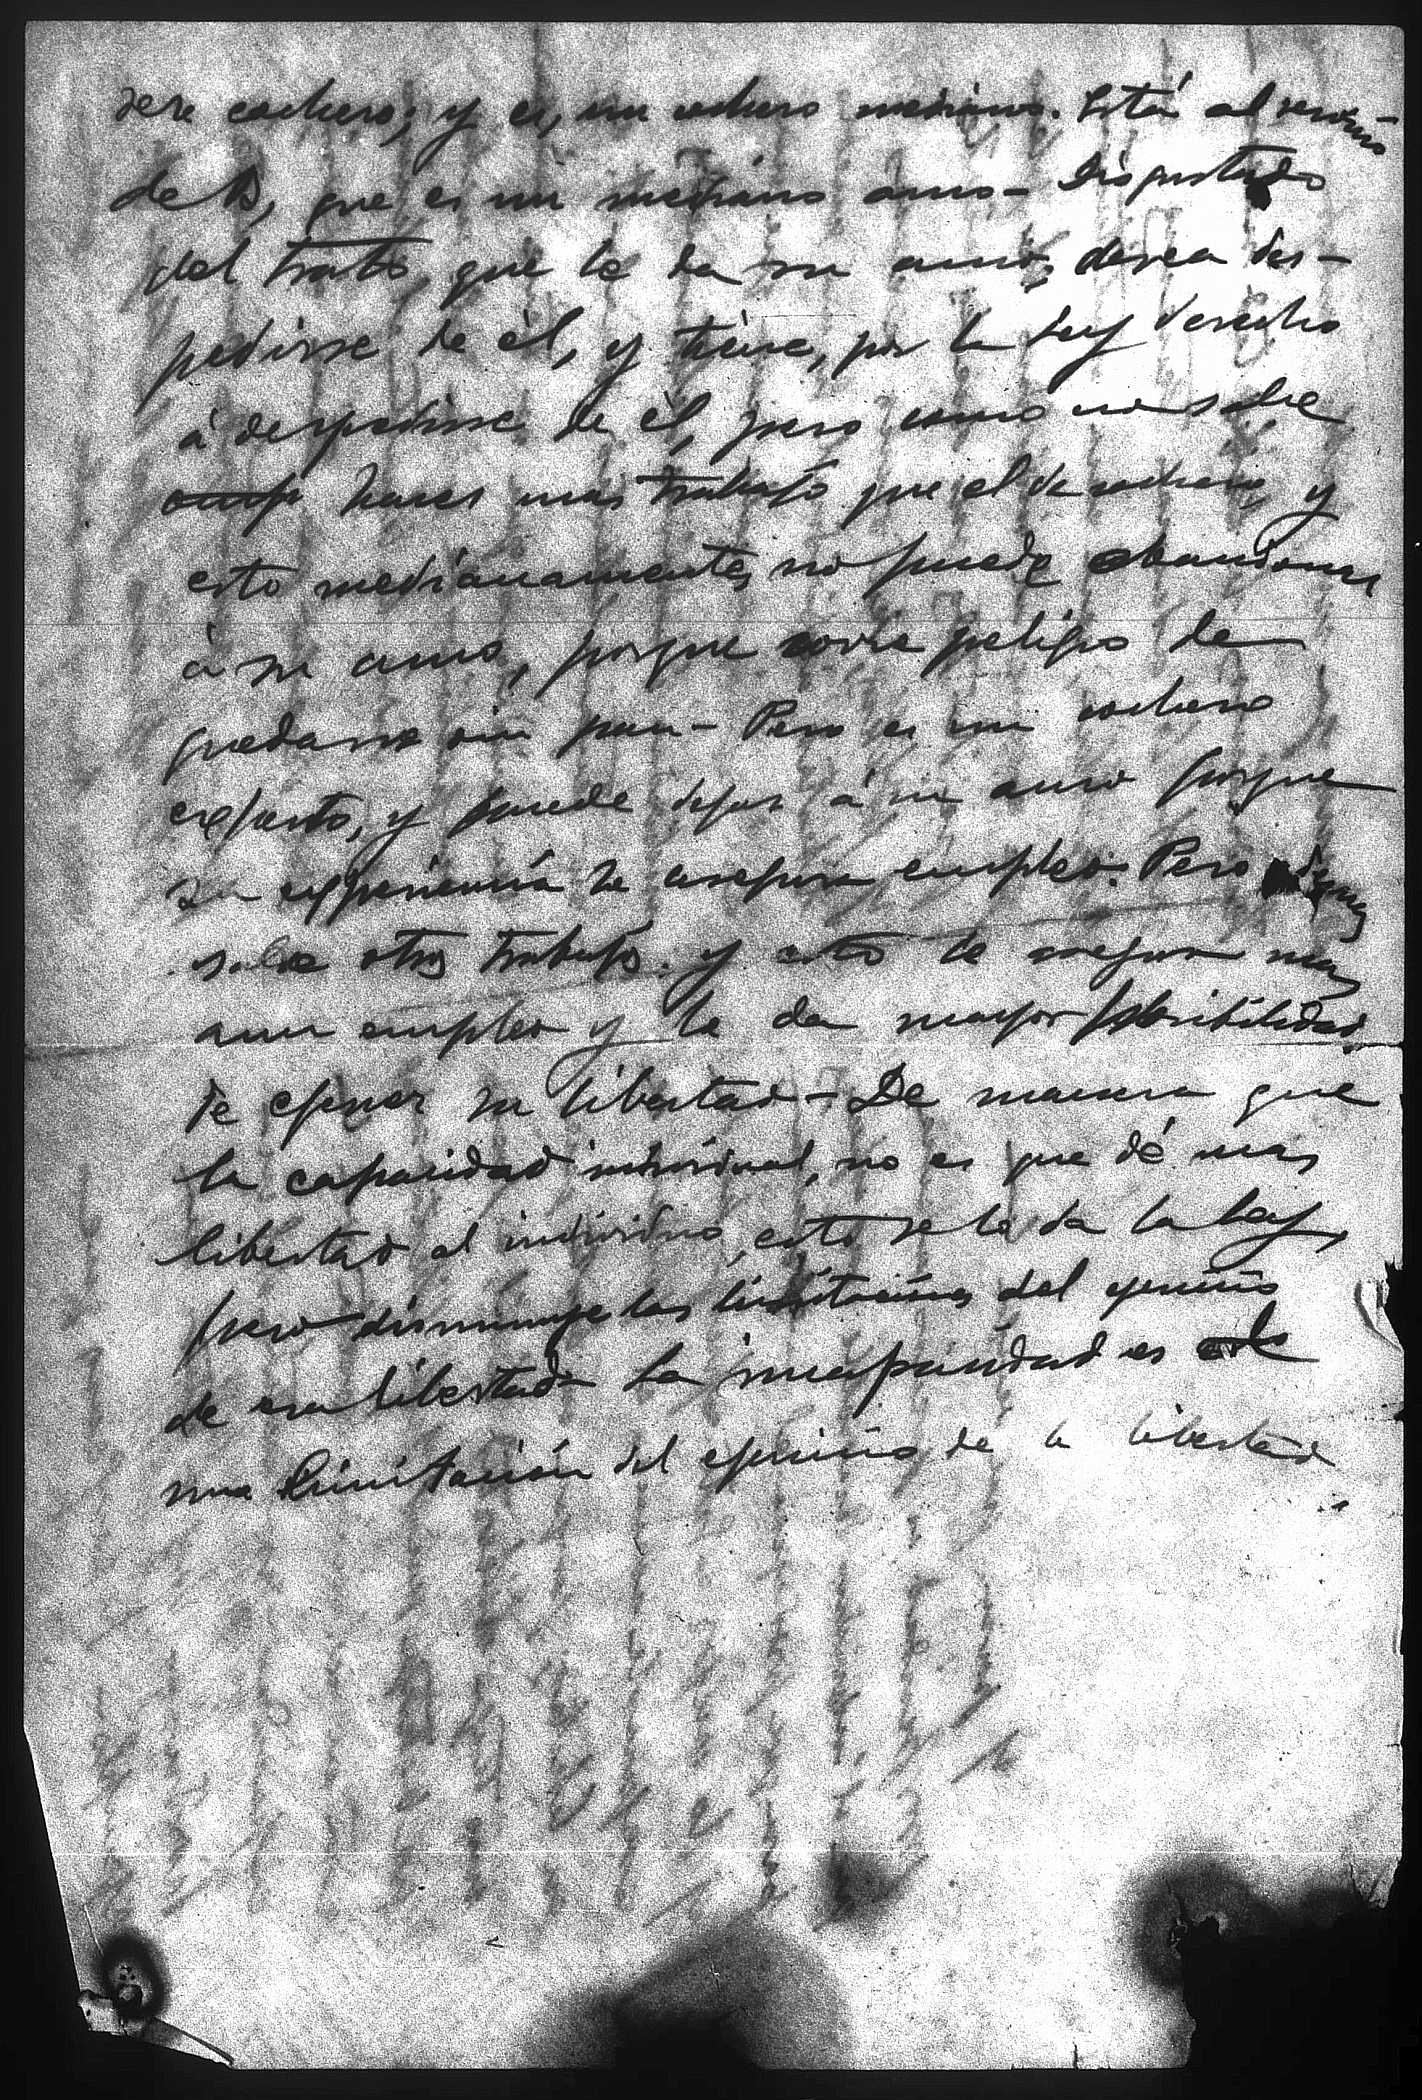 sera cochero; y es, un cochero mediano. Está al servicio
de B, que es un mediano amo – Disgustado
del trato, que le da su amo, desea des-
pedirse de él, y tiene, por la ley derecho
á despedirse de él, pero como no sabe
hacer mas trabajo que el de cochero, y
esto medianamente, no puede abandonar
á su amo, porque corre peligro de
quedarse sin pan – Pero es un cochero
experto, y puede dejar á su amo porque
su experiencia le asegura empleo. Pero
sabe otro trabajo. y esto le asegura mas
aun empleo y le da mayor posibilidad
de ejercer su libertad – De manera que
la capacidad individual, no es que dé mas
libertad al individuo, esto se lo da la ley,
pero disminuye las limitaciones del ejercicio
de esa libertad – La incapacidad es
una limitación del ejercicio de la libertad